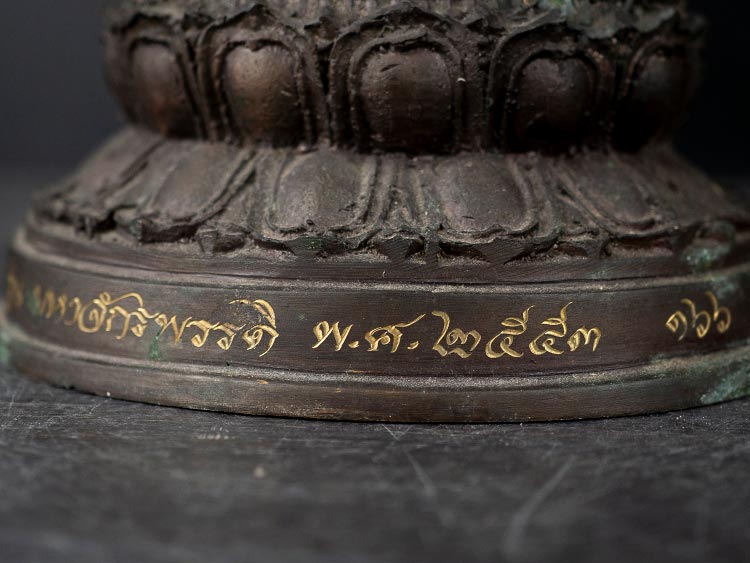 มหาจักรพรรดิ พ.ศ.๒๕๕๓ ๑๖๖